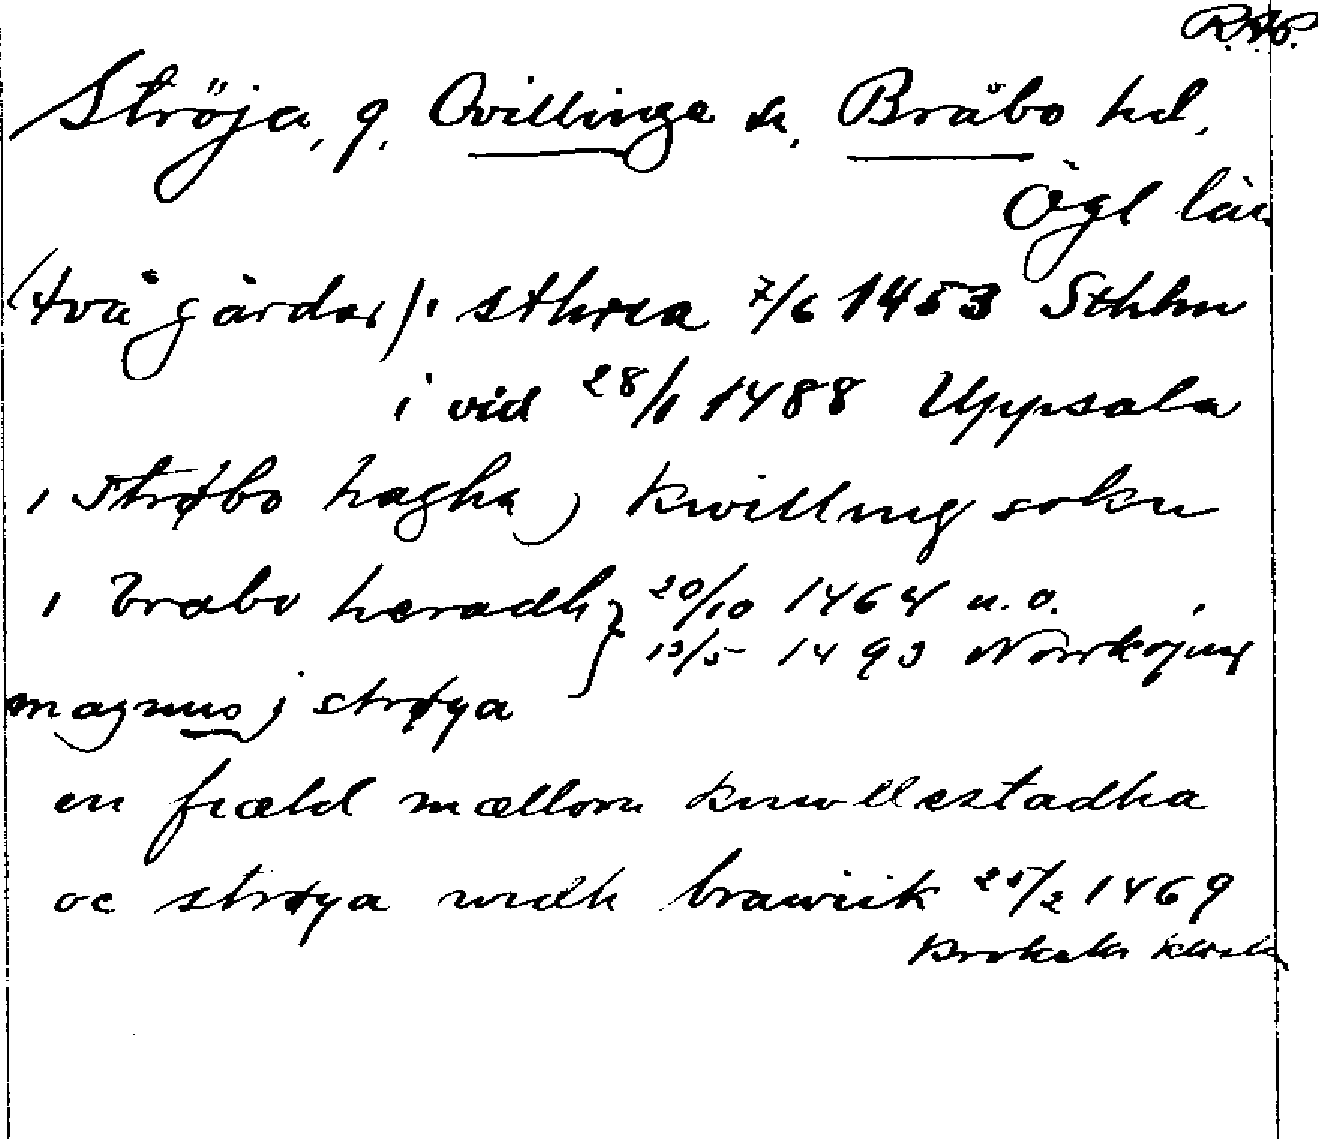 R.A.P.
Ströja, g. Qvillinge sn, Bråbo hd,
Ögl län
(två gårdar) i sthrea 7/6 1453 Sthlm
i vid 28/1 1488 Uppsala
i Strøbo hagha j kwilling sokn
i brabo heradh } 20/10 1464 u.o.
13/5 1493 Norrköping
magnus j strøya
en fiæld mællom knwllestadha
oc strøya widh brawiik 25/2 1469